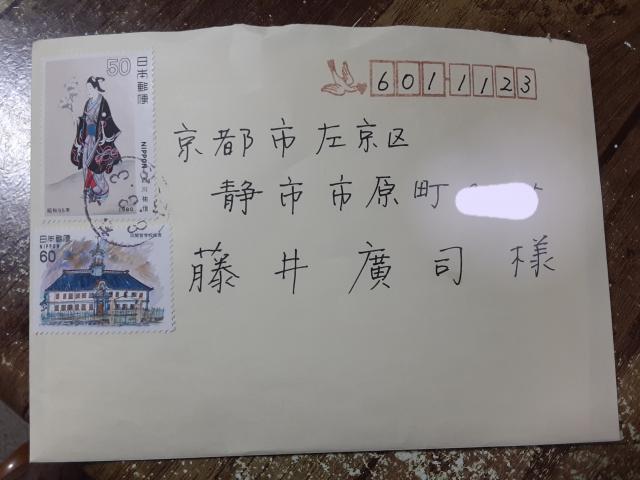 6011123
京都市左京区
静市市原町
藤井廣司 様
50
日本郵便
NIPPON
昭和55年
1980
日本郵便
NIPPON
60